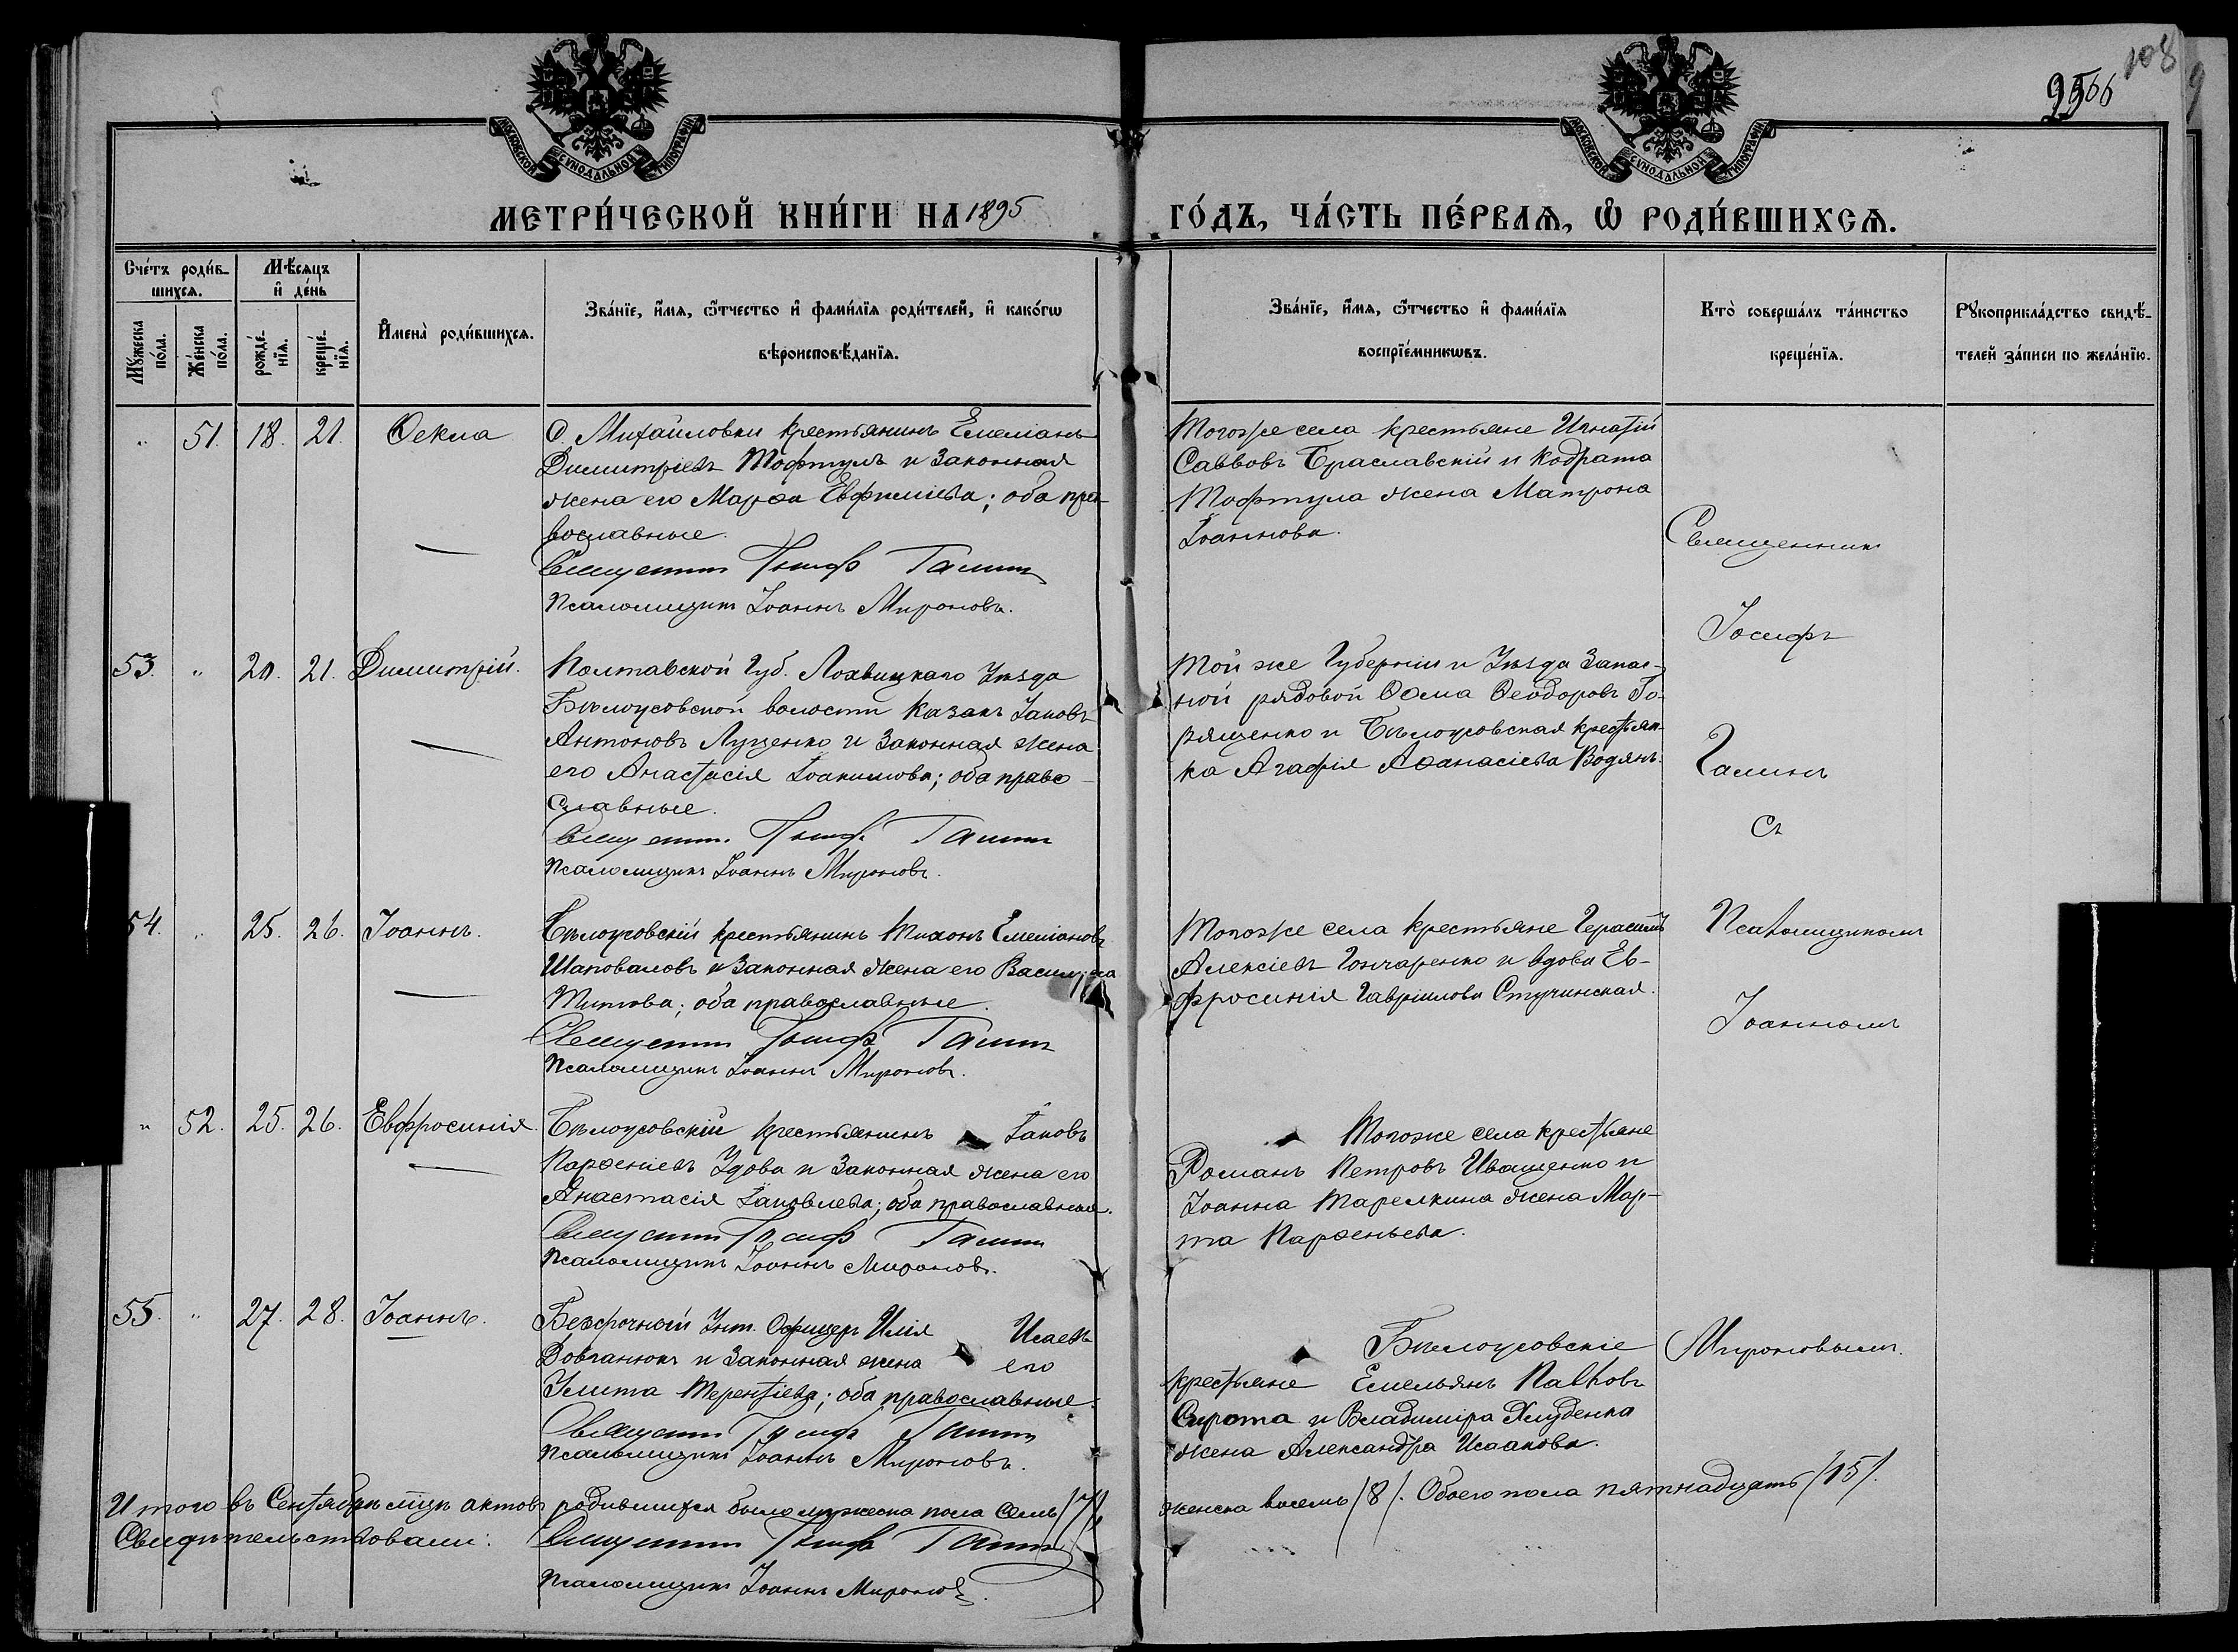 108
2566
МОСКОВСКОЙ СѴНОДАЛЬНОЙ ТИПОГРАФІИ
МОСКОВСКОЙ СѴНОДАЛЬНОЙ ТИПОГРАФІИ
МЕТРИ́ЧЕСКОЙ КНИ́ГИ НА 1895 ГО́ДЪ, ЧА́СТЬ ПЕ́РВАѦ, Ѡ РОДИ́ВШИХСѦ.
Сче́тъ роди́в-
шихсѧ.
Мѣ́сѧцъ
и҆ де́нь
Мꙋ́жеска
по́ла.
Же́нска
по́ла.
рожде́-
нїѧ.
креще́-
нїѧ.
И҆мена̀ роди́вшихсѧ.
Зва́нїе, и҆́мѧ, ѻ҆́тчество и҆ фами́лїѧ роди́телей, и҆ како́гѡ
вѣроисповѣ́данїѧ.
Зва́нїе, и҆́мѧ, ѻ҆́тчество и҆ фами́лїѧ
воспрїе́мникѡвъ.
Кто̀ соверша́лъ та́инство
креще́нїѧ.
Рꙋкоприкла́дство свидѣ́-
телей за́писи по жела́нїю.
" 51. 18. 21. Ѳекла
С. Михайловки крестьянинъ Емеліанъ
Димитріевъ Мофтулъ и законная
жена его Марѳа Евфиміева; оба пра-
вославные.
Священникъ Іосифъ Галинъ
Псаломщикъ Іоаннъ Мироновъ.
Тогоже села крестьяне Игнатій
Саввовъ Браславскій и Кодрата
Мофтула жена Матрона
Іоаннова.
53. " 20. 21. Димитрій.
Полтавской Губ. Лохвицкаго Уѣзда
Бѣлоусовской волости казакъ Іаковъ
Антоновъ Луценко и законная жена
его Анастасія Іоакимова; оба право-
славные.
Священникъ Іосифъ Галинъ
Псаломщикъ Іоаннъ Мироновъ.
Той же Губерніи и Уѣзда Запас-
ной рядовой Ѳома Ѳеодоровъ Го-
рященко и Бѣлоусовская крестьян-
ка Агафія Аѳанасіева Водянъ.
54. " 25. 26. Іоаннъ.
Бѣлоусовскій крестьянинъ Тихонъ Емеліановъ
Шаповаловъ и законная жена его Василиса
Титова; оба православные.
Священникъ Іосифъ Галинъ
Псаломщикъ Іоаннъ Мироновъ.
Тогоже села крестьяне Герасимъ
Алексіевъ Гончаренко и вдова Ев-
фросинія Гавріилова Стучинская.
" 52. 25. 26. Евфросинія.
Бѣлоусовскій крестьянинъ Іаковъ
Парѳеніевъ Удова и законная жена его
Анастасія Іаковлева; оба православные.
Священникъ Іосифъ Галинъ
Псаломщикъ Іоаннъ Мироновъ.
Тогоже села крестьяне
Романъ Петровъ Иващенко и
Іоанна Тарелкина жена Мар-
та Парѳеньева.
55. " 27. 28. Іоаннъ.
Безсрочный Унт. Офицеръ Илія Исаевъ
Вовчанюкъ и законная жена его
Улита Терентіева; оба православные.
Священникъ Іосифъ Галинъ
Псаломщикъ Іоаннъ Мироновъ.
Бѣлоусовскіе
крестьяне Емельянъ Павловъ
Сирота и Владиміра Хлуденка
жена Александра Исаакова.
Священникъ
Іосифъ
Галинъ
съ
Псаломщикомъ
Іоанномъ
Мироновымъ.
Итого въ Сентябрѣ мцѣ актовъ родившихся было мужеска пола семь /7/,
женска восемь /8/. Обоего пола пятнадцать /15/.
Свидѣтельствовали: Священникъ Іосифъ Галинъ
Псаломщикъ Іоаннъ Мироновъ.